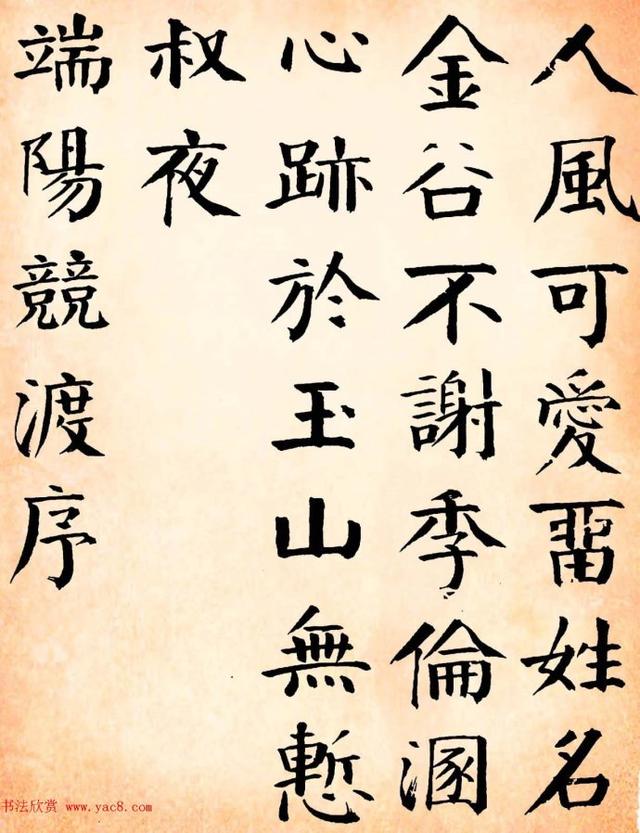 人風可愛畱姓名
金谷不謝季倫溷
心跡於玉山無慙
叔夜
端陽競渡序
书法欣赏 www.yac8.com